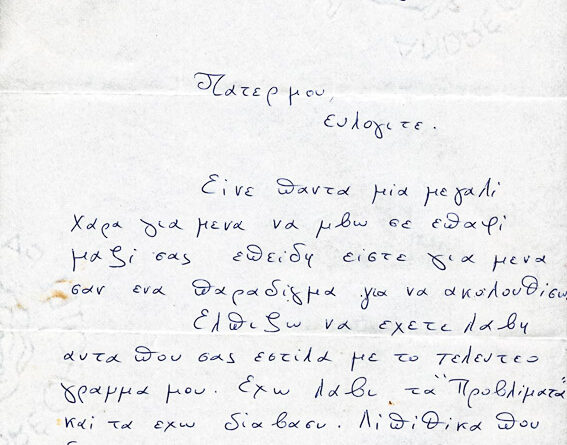 Πατερ μου,
ευλογιτε.
Εινε παντα μια μεγαλι
χαρα για μενα να μβω σε επαφι
μαζι σας επειδη ειστε για μενα
σαν ενα παραδιγμα για να ακολουθισω,
Ελπιζω να εχετε λαβη
αυτα που σας εστιλα με το τελευτεο
γραμμα μου. Εχω λαβι τα "Προβλιματα"
και τα εχω διαβασυ. Λιπιθικα που